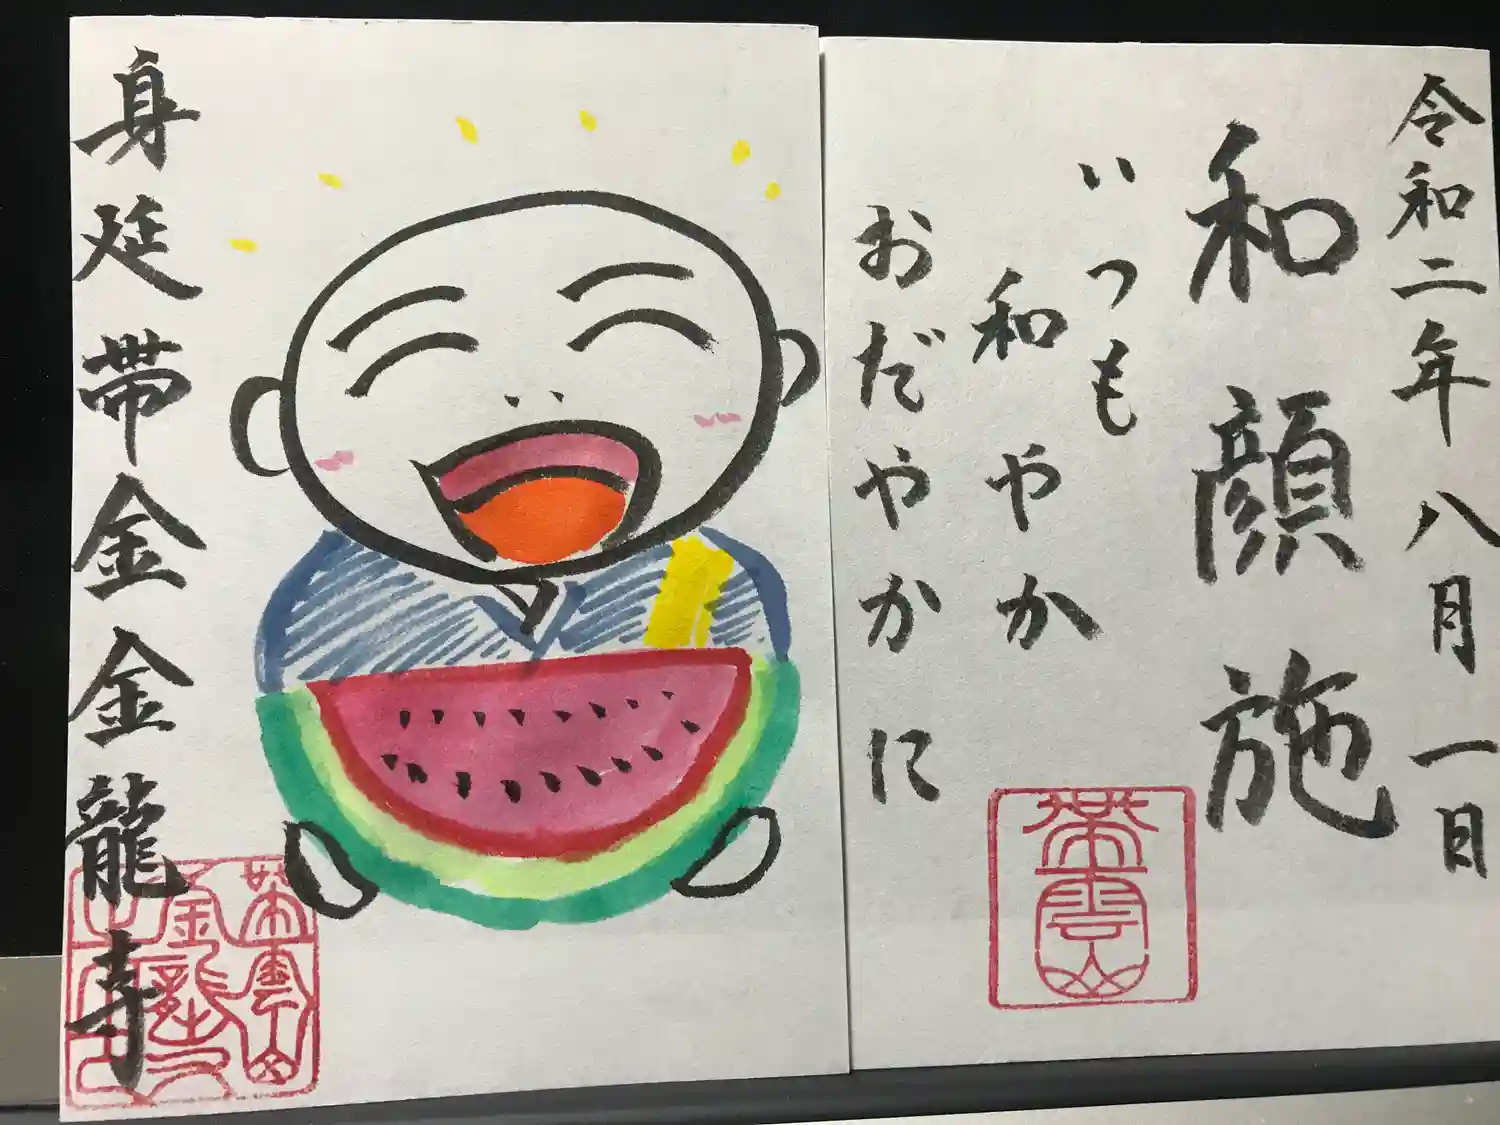 令和二年八月一日
和顔施
いつも
和やか
おだやかに
帯雲山
身延帯金金龍寺